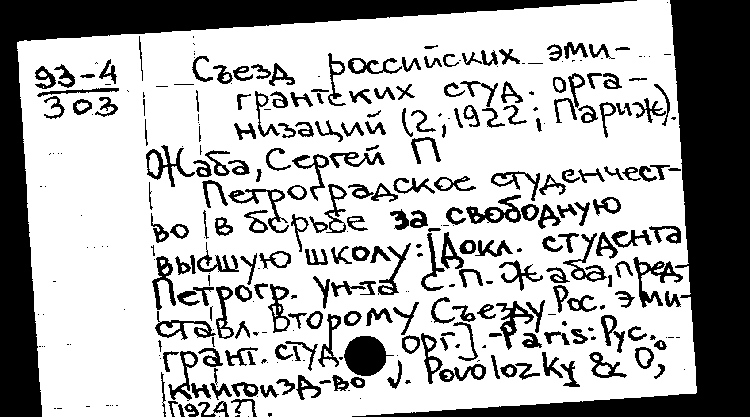 93-4
303
Съезд российских эми-
грантских студ. орга-
низаций (2; 1922; Париж).
Жаба, Сергей П
Петроградское студенчест-
во в борьбе за свободную
высшую школу: [Докл. студента
Петрогр. ун-та С.П. Жаба, пред-
ставл. Второму Съезду Рос. эми-
грант. студ. орг.]. - Paris: Рус.
книгоизд-во J. Povolozky & Co,
[1924?].